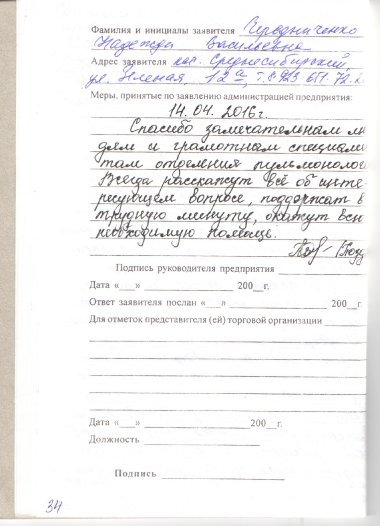 Фамилия и инициалы заявителя Чередниченко
Надежда Васильевна
Адрес заявителя пос. Среднесибирский,
ул. Зеленая, 12а, т. 8 923
Меры, принятые по заявлению администрацией предприятия:
14.04.2016г.
Спасибо замечательным лю
дям и грамотным специалис
там отделения пульмонолог
Всегда расскажут всё об инте
ресующем вопросе, поддержат в
трудную минуту, окажут всю
необходимую помощь.
Подпись руководителя предприятия
Дата «___» ____ 200__г.
Ответ заявителя послан «___» ____ 200__г.
Для отметок представителя (ей) торговой организации
Дата «___» ____ 200__г.
Должность
Подпись
34